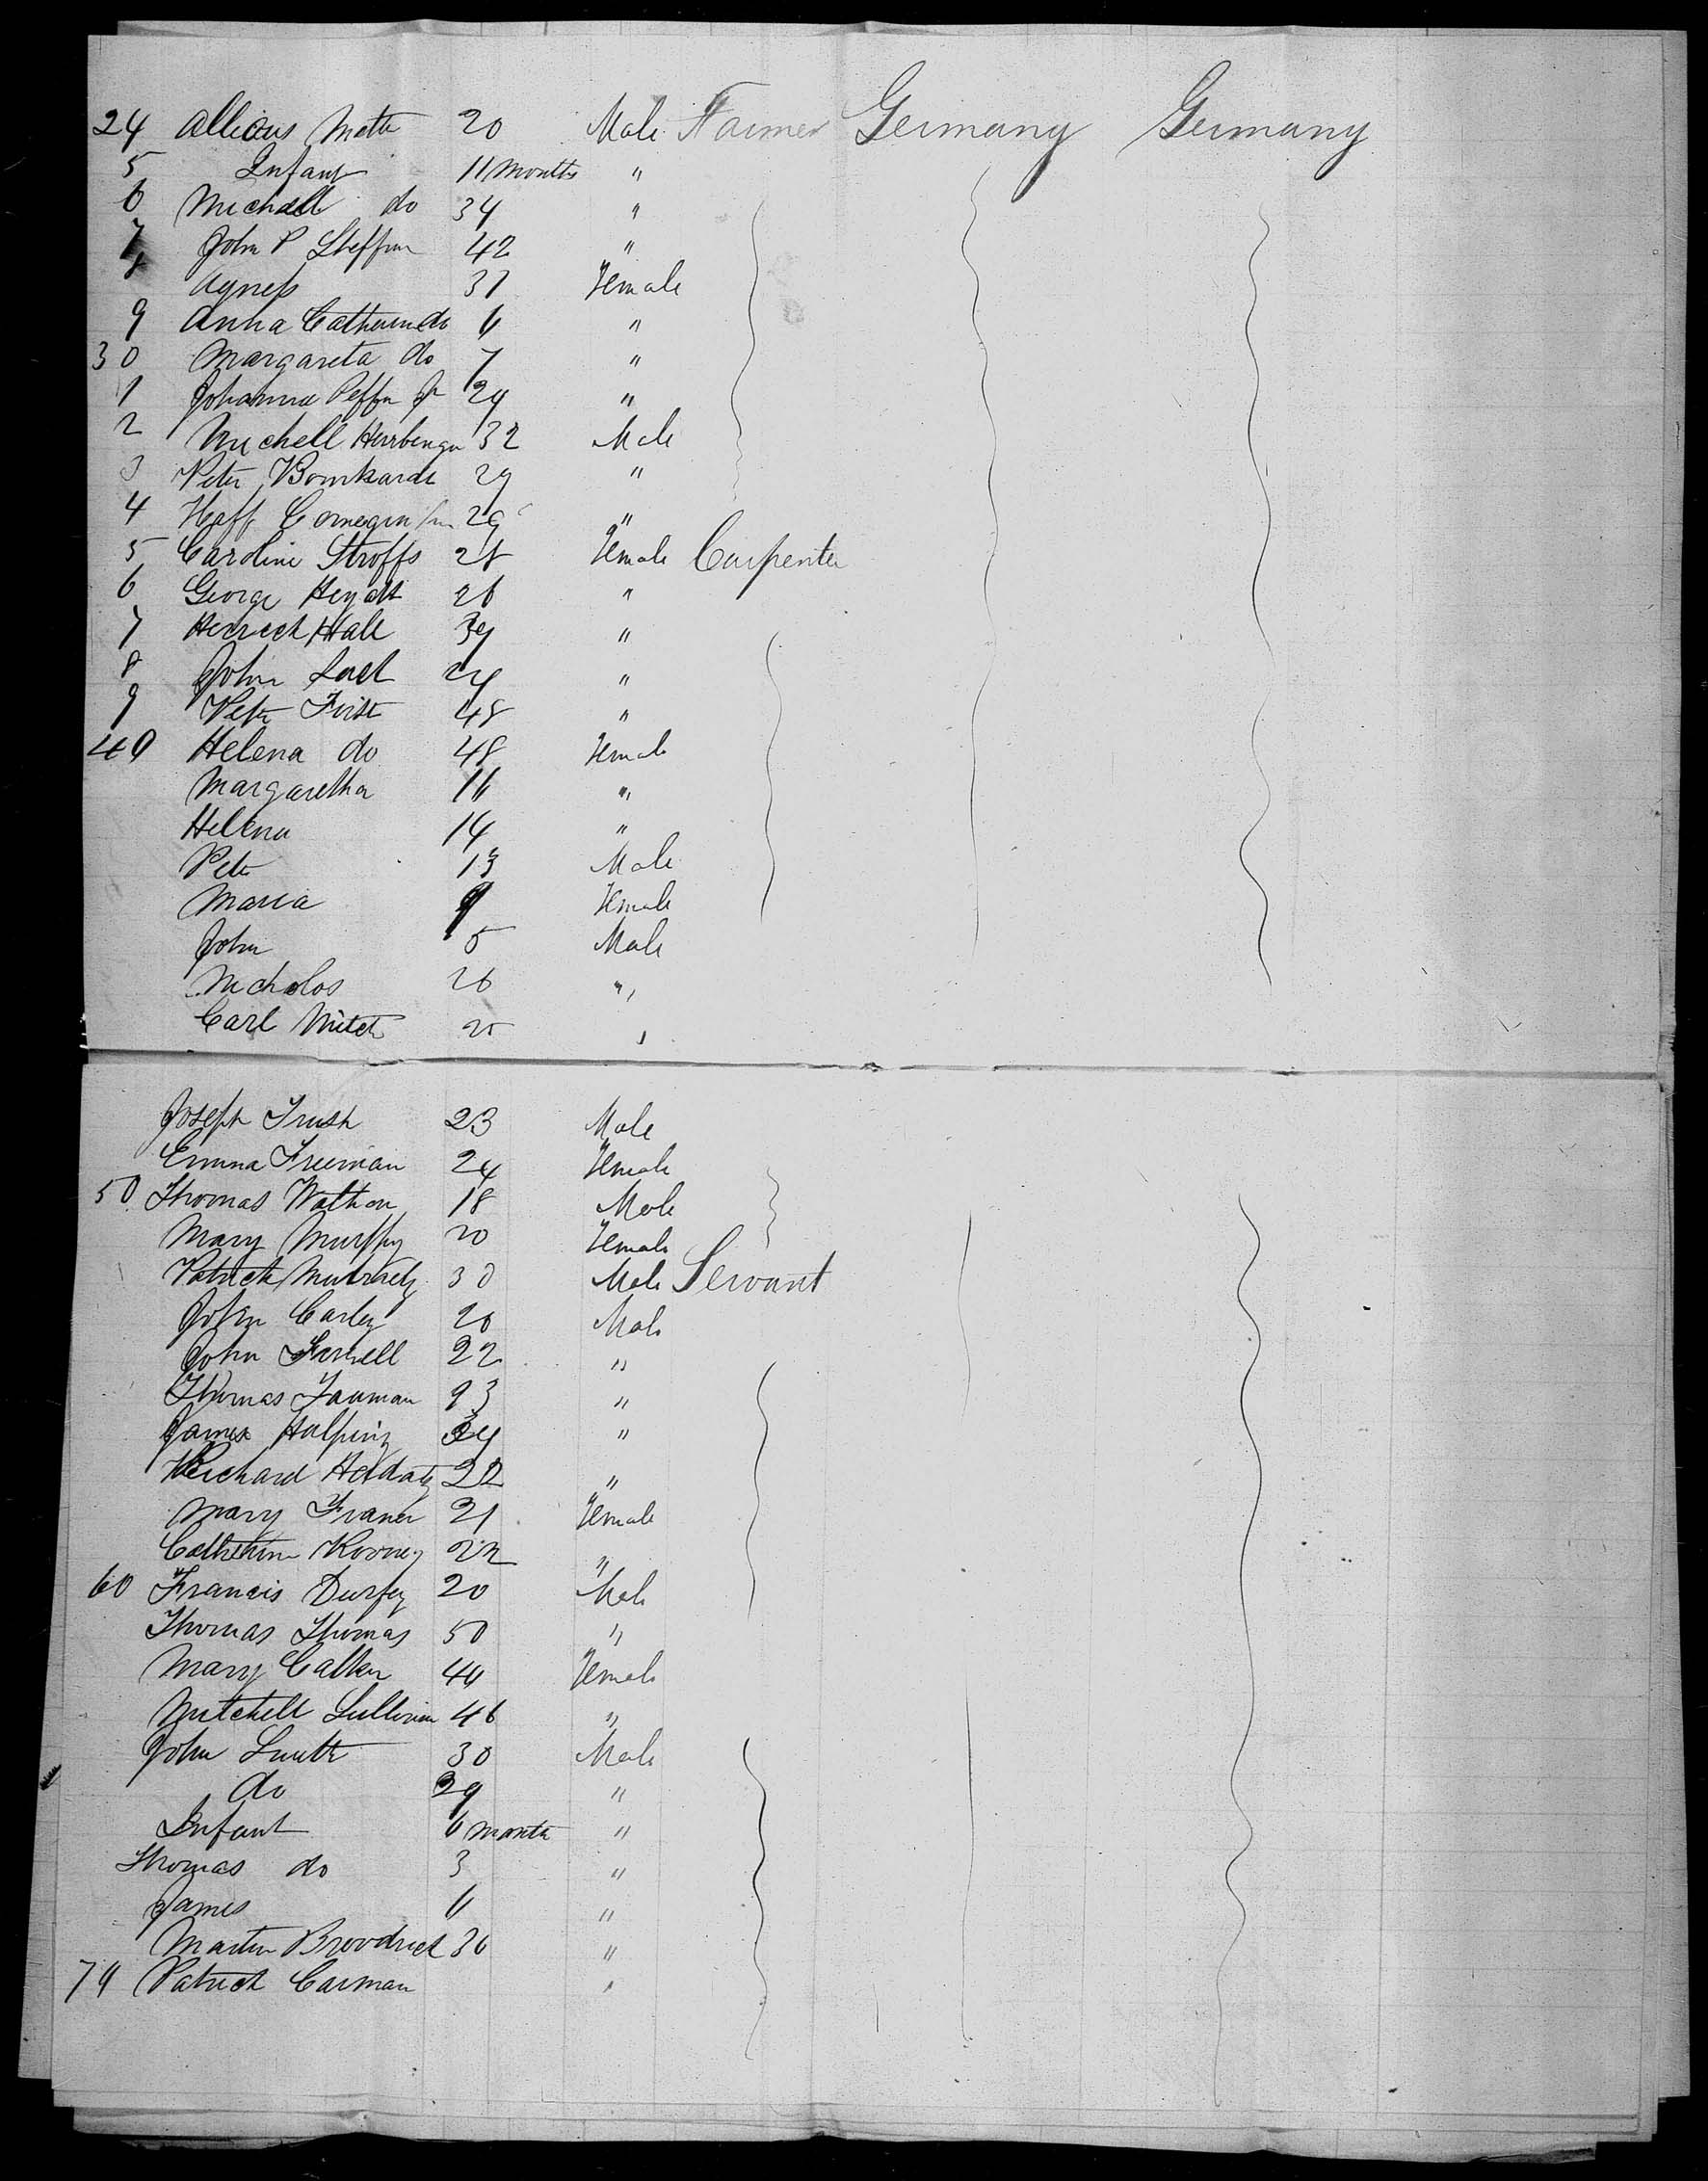 24 Allicus Mette 20 Male Farmer Germany Germany
5 Infant 11 Months "
6 Michall do 34 "
7 John P Steffen 42 "
8 Agness 31 Female
9 Anna Catherine do 6 "
30 Margareta do 7 "
1 Johanna Peffer 29 "
2 Michell 32 Male
3 Peter Bomkarde 29 "
4 Haff 29 "
5 Caroline Stroffs 28 Female Carpenter
6 George Heydt 26 "
7 Herrech Hall 39 "
8 John 24 "
9 Peter Furst 48 "
40 Helena do 48 Female
Margaretha 16 "
Helena 14 "
Pete 13 Male
Maria 9 Female
John 5 Male
Nicholos 26 "
Carl Mitch 25 "
Joseph Trush 23 Male
Emma Freeman 24 Female
50 Thomas Walton 18 Male
Mary Murffy 20 Female
Patrick 30 Male Servant
John Carley 20 Male
John Farrell 22 "
Thomas 23 "
James Halpiny 24 "
Richard 22 "
Mary Franer 21 Female
Catherine Rooney 22 "
60 Francis Durfey 20 Male
Thomas Thomas 50 "
Mary Calker 44 Female
Mitchell Sullivan 46 "
John Smith 30 Male
do 29 "
Infant 6 month "
Thomas do 3 "
James 6 "
Martin Brodrick 36 "
70 Patrick Carman "